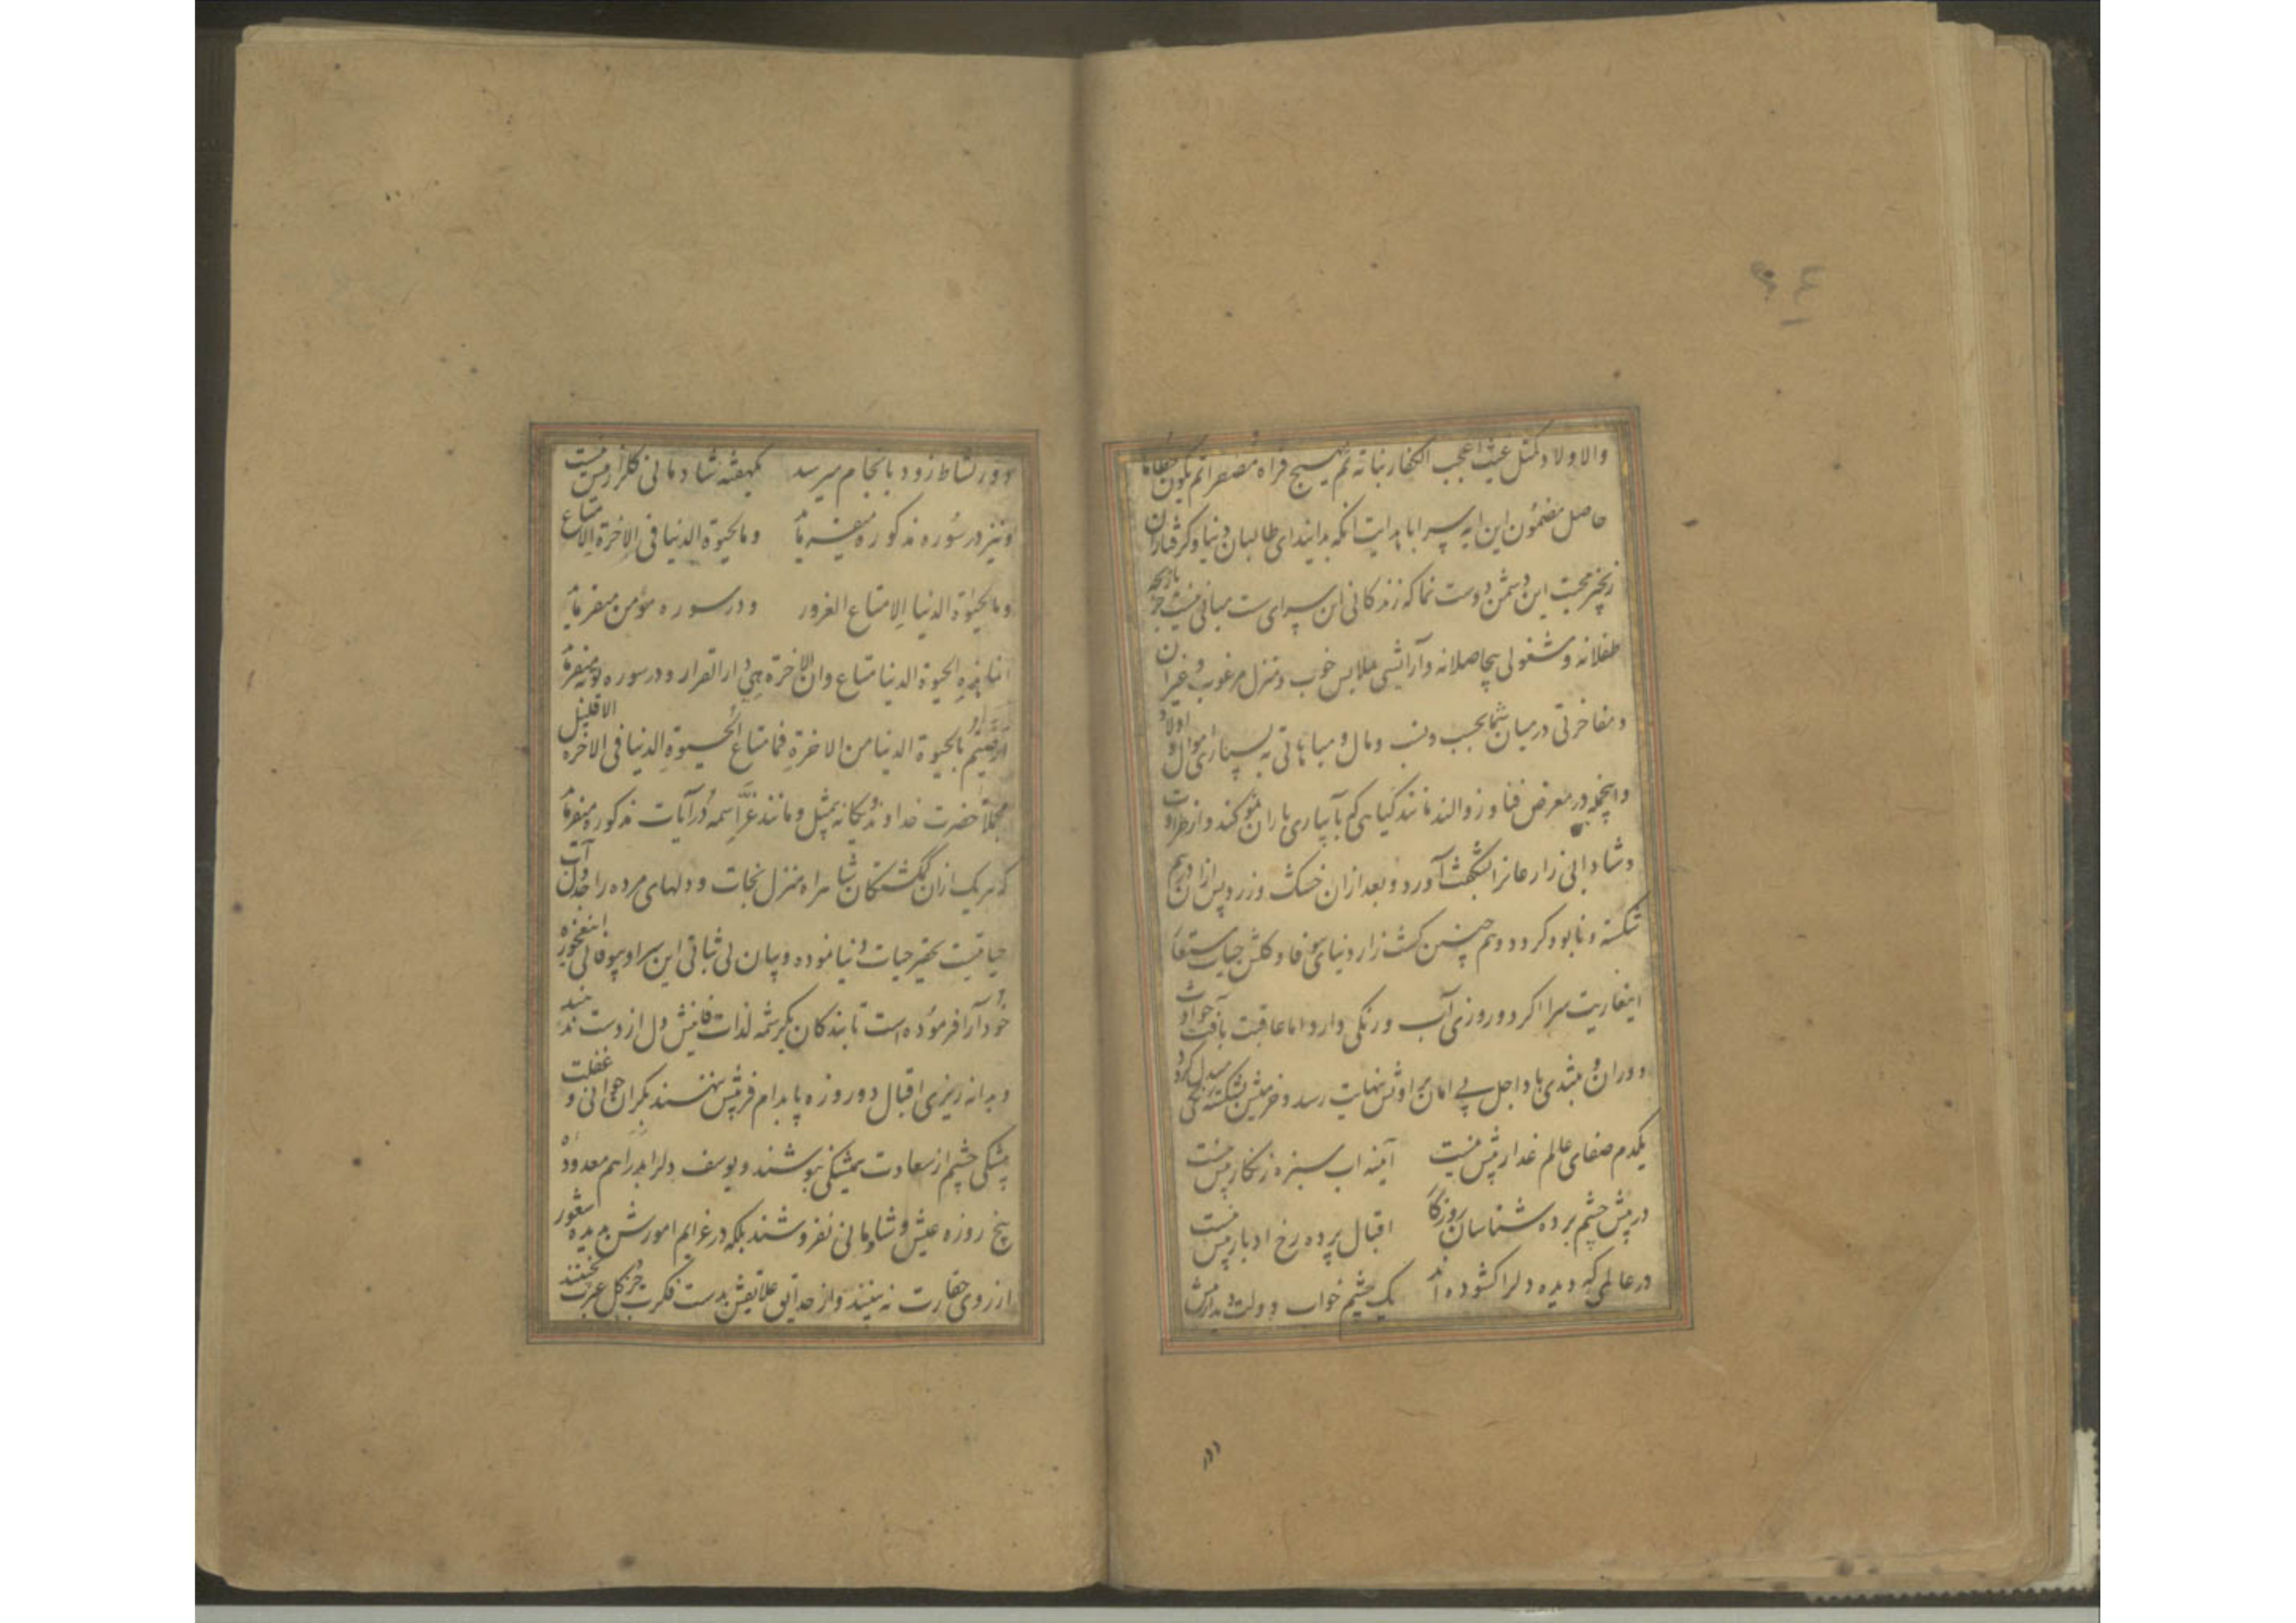 والاولاد کمثل غیث اعجب الکفار نباته ثم یهیج فتراه مصفرا ثم یکون حطاما
حاصل مضمون این ایه سراپا هدایت انکه بدانید ای طالبان دنیا و گرفتاران
زنجیر محبت این دشمن دوست نما که زندکانی این سرای سست مبانی نیست جز بازیچه
طفلانه و مشغولی بیحاصلانه و آرایشی ملابس خوب و منزل مرغوب و غیر ان
و مفاخرتی درمیان شما بحسب و نسب و مال و مباهاتی به بسیاری اموال و اولاد
و اینجمله در معرض فنا و زوالند مانند کیاهی که بآبیاری باران نمو کند و از طراوت
و شادابی زارعانرا بشکفت آورد و بعد ازان خشک و زرد و پس ازان درهم
شکسته و نابود کردد و هم چنین کشت زار دنیای بیوفا و کلشن حیات مستعار
اینعاریت سرا اکر دو روزی آب و رنکی دارد اما عاقبت بآفت حوادث
دوران و بتندی باد اجل بی امان بر اوتش نهایت رسد و خرمیش بشکستکی مبدل کردد
یکدم صفای عالم غدار بیش نیست آینه اب سبزه زنکار بیش نیست
در پیش چشم پرده شناسان روزکار اقبال پرده رخ ادبار بیش نیست
در عالمی که دیده دلرا کشوده اند یک چشم خواب دولت بیدار بیش
دور نشاط زود بانجام میرسد یکهفته شادمانی کلزار بیش نیست
و نیز در سوره مذکوره میفرماید وما الحیوة الدنیا فی الاخرة الا متاع
وما الحیوة الدنیا الا متاع الغرور و در سوره مؤمن میفرماید
انما هذه الحیوة الدنیا متاع وان الاخرة هی دار القرار و در سوره توبه میفرماید
ارضیتم بالحیوة الدنیا من الاخرة فما متاع الحیوة الدنیا فی الاخرة الا قلیل
مجملا حضرت خداوند یکانه بیمثل و مانند عز اسمه در آیات مذکوره میفرماید
که هریک ازان کمکشتکان شاهراه منزل نجات و دلهای مرده را آب
حیاتیست تحقیر حیات دنیا نموده و بیان بی ثباتی این سراو بیوفایی
خودآرا فرموده است تا بندکان بکرشمه لذات فانیش دل از دست ندهند
و بدانه ریزی اقبال دو روزه پا بدام فریبش ننهند بکران جوانی و غفلت
پیشکی چشم از سعادت همیشکی نپوشند و یوسف دلرا بدراهم معدوده
پنج روزه عیش و شادمانی نفروشند بلکه در غرایم امورش بدیده شعور
از روی حقارت نه بینند و از حدایق علایقش بدست فکرت جز کل عبرت نچینند